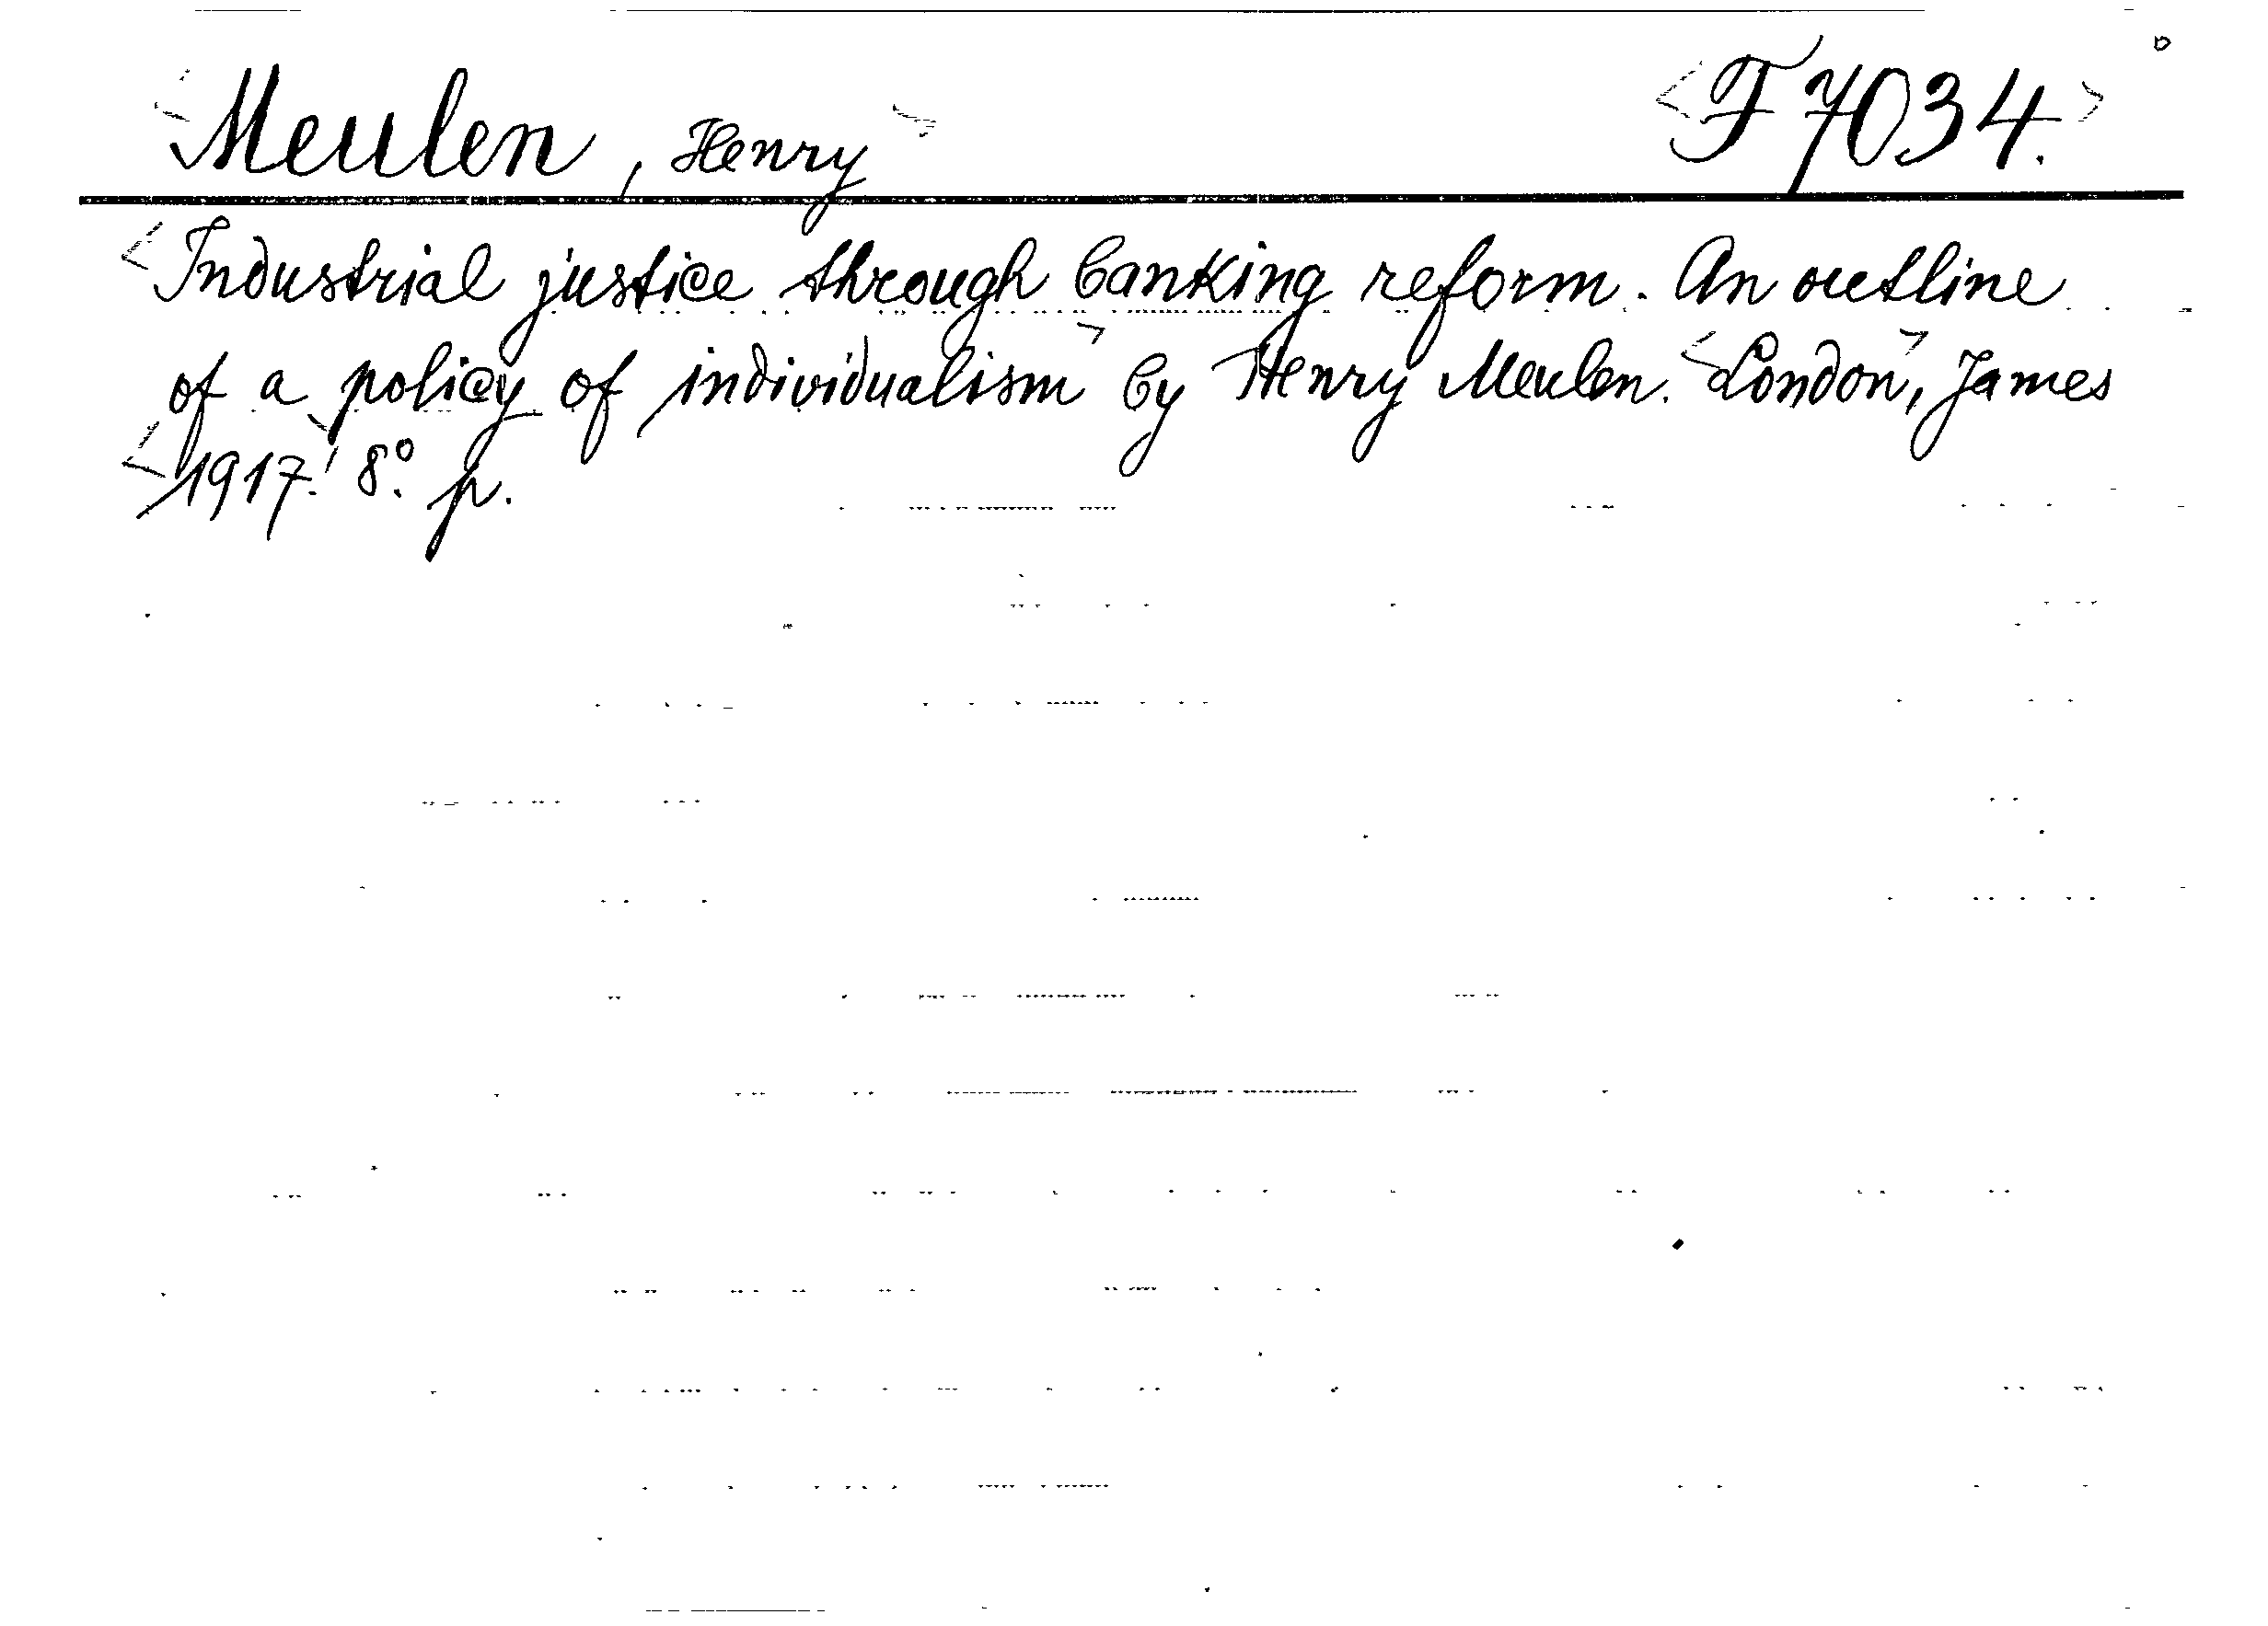 Meulen, Henry F 7034.
Industrial justice through banking reform. An outline
of a policy of individualism by Henry Meulen. London, James
1917. 8º. p.